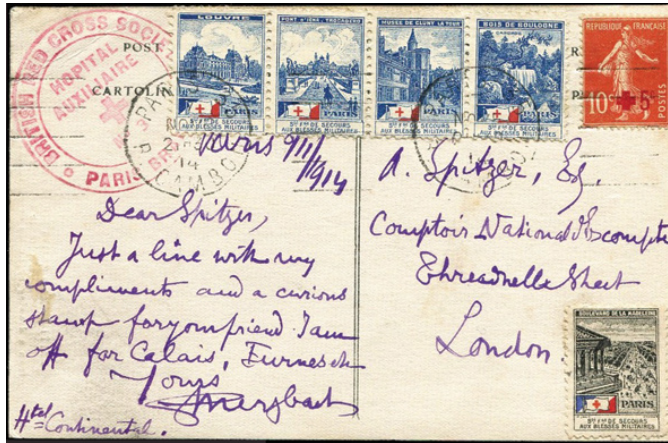 BRITISH RED CROSS SOCIETY
HOPITAL
AUXILIAIRE
PARIS
POST
CARTOLIN
LOUVRE
PARIS
Sté Fse DE SECOURS
AUX BLESSÉS MILITAIRES
PONT D'IÉNA - TROCADERO
PARIS
Sté Fse DE SECOURS
AUX BLESSÉS MILITAIRES
MUSÉE DE CLUNY LA TOUR
PARIS
Sté Fse DE SECOURS
AUX BLESSÉS MILITAIRES
BOIS DE BOULOGNE
CASCADE
PARIS
Sté Fse DE SECOURS
AUX BLESSÉS MILITAIRES
REPUBLIQUE FRANÇAISE
10c + 5c
POSTES
R
P
PARIS
CAMBO
14
Paris 9/11/1914
Dear Spitzer,
Just a line with my
compliments and a curious
stamp for your friend. I am
off for Calais, Furnes etc
Yours
Htel Continental.
A. Spitzer, Esq.
Comptoir National d'Escompte
Threadnelle Street
London.
BOULEVARD DE LA MADELEINE
PARIS
Sté Fse DE SECOURS
AUX BLESSÉS MILITAIRES